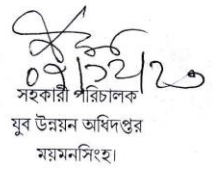 সহকারী পরিচালক
যুব উন্নয়ন অধিদপ্তর
ময়মনসিংহ।